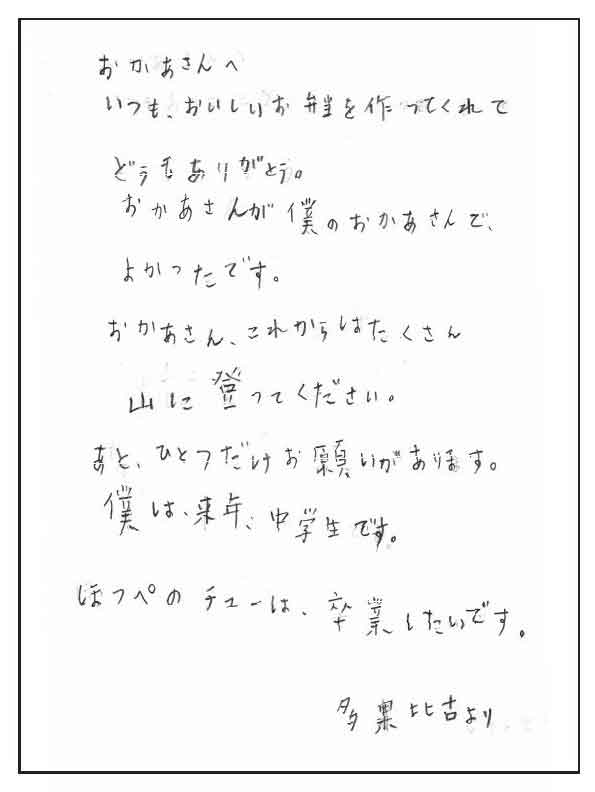 おかあさんへ
いつも、おいしいお弁当を作ってくれて
どうもありがとう。
おかあさんが僕のおかあさんで、
よかったです。
おかあさん、これからはたくさん
山に登ってください。
あと、ひとつだけお願いがあります。
僕は、来年、中学生です。
ほっぺのチューは、卒業したいです。
多果比古より